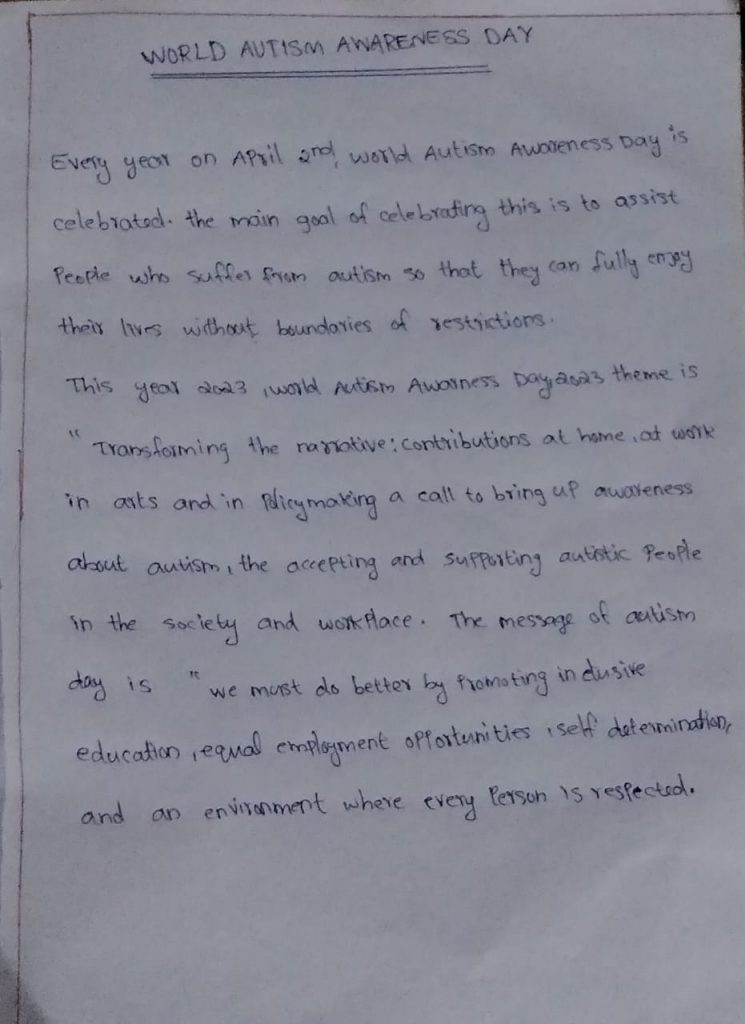 WORLD AUTISM AWARENESS DAY
Every year on April 2nd, world Autism Awareness Day is
celebrated. the main goal of celebrating this is to assist
People who suffer from autism so that they can fully enjoy
their lives without boundaries of restrictions.
This year 2023, world Autism Awarness Day, 2023 theme is
" Transforming the narrative: contributions at home, at work
in arts and in Policymaking a call to bring up awareness
about autism, the accepting and supporting autistic People
in the society and workplace. The message of autism
day is " we must do better by Promoting inclusive
education, equal employment opportunities, self determination,
and an environment where every Person is respected.